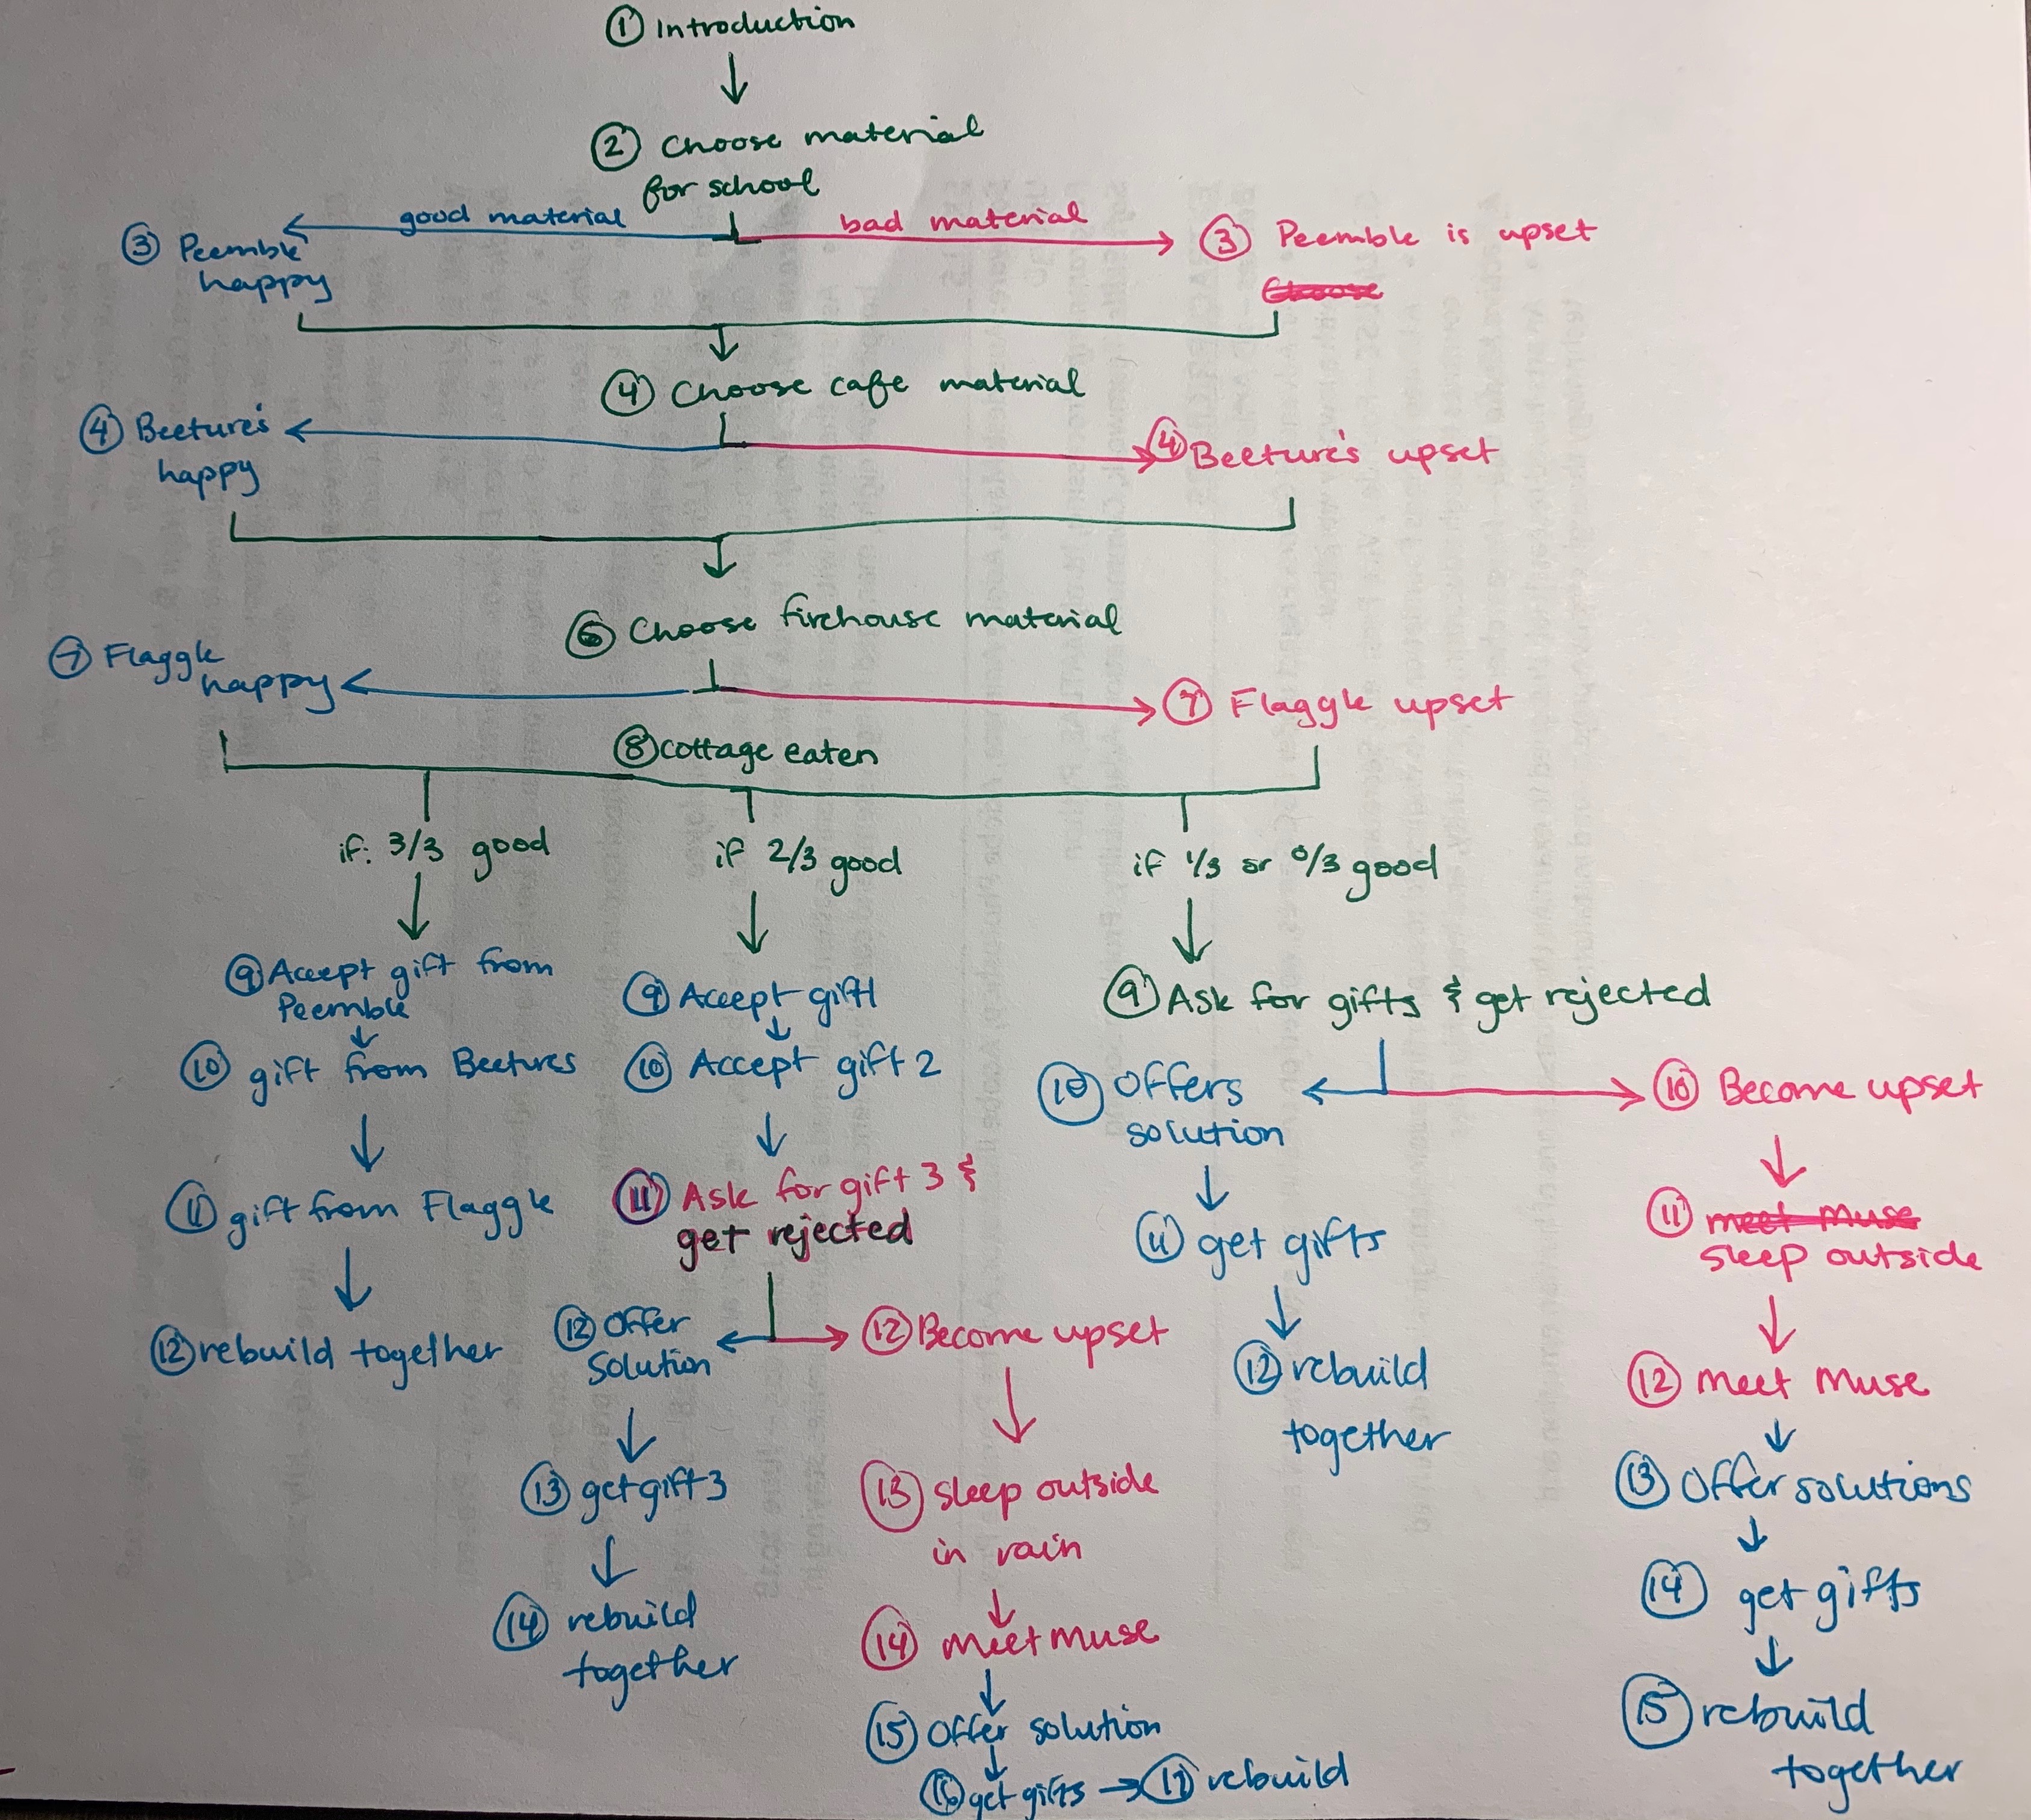 ① Introduction
② Choose material
for school
good material
bad material
③ Peemble
happy
③ Peemble is upset
④ Choose cafe material
④ Beeture's
happy
④ Beeture's upset
⑥ Choose firehouse material
⑦ Flaggle
happy
⑦ Flaggle upset
⑧ cottage eaten
if: 3/3 good
if 2/3 good
if 1/3 or 0/3 good
⑨ Accept gift from
Peemble
⑩ gift from Beetures
⑪ gift from Flaggle
⑫ rebuild together
⑨ Accept gift 1
⑩ Accept gift 2
⑪ Ask for gift 3 &
get rejected
⑫ Offer
Solution
⑬ get gift 3
⑭ rebuild
together
⑫ Become upset
⑬ sleep outside
in rain
⑭ meet muse
⑮ Offer solution
⑯ get gifts → ⑰ rebuild
⑨ Ask for gifts & get rejected
⑩ Offers
solution
⑪ get gifts
⑫ rebuild
together
⑩ Become upset
⑪ meet muse
sleep outside
⑫ meet muse
⑬ Offer solutions
⑭ get gifts
⑮ rebuild
together